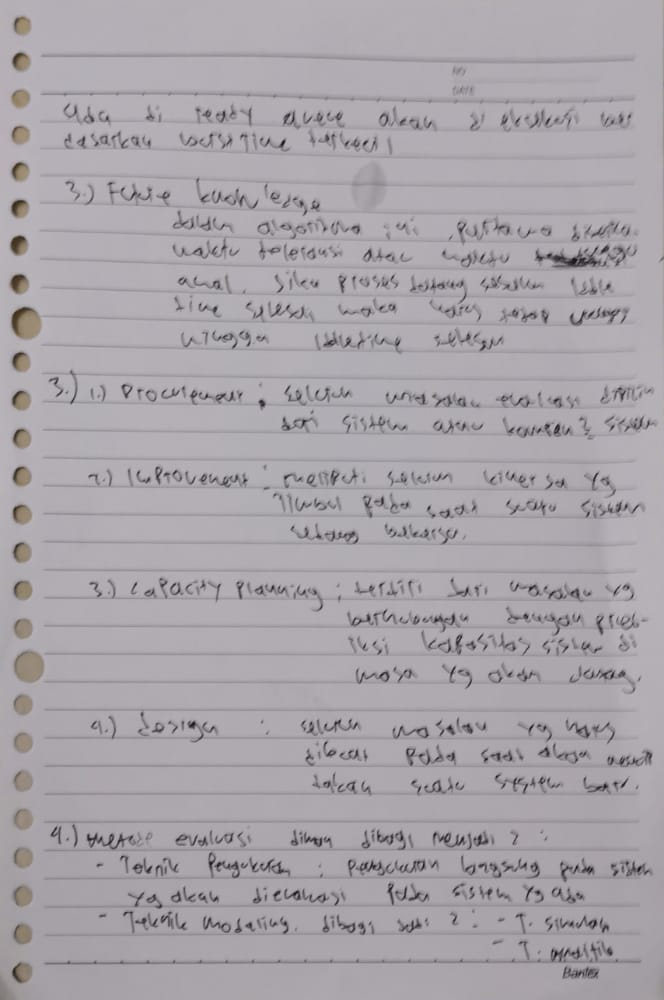 NO
DATE
ada di ready queue akan di eksekusi ber
dasarkan burst time terkecil
3.) Future knowledge
dalam algoritma ini, pertama
waktu toleransi atau waktu
awal. Jika proses datang sebelum Idle
time selesai maka harus tetap
hingga Idle time selesai
3.) 1.) Procurement : seluruh masalah evaluasi dipilih
dari sistem atau komponen2 sistem
2.) Improvement : meliputi seluruh kinerja yg
timbul pada saat suatu sistem
sedang bekerja.
3.) Capacity planning : terdiri dari masalah yg
berhubungan dengan pred-
iksi kapasitas sistem di
masa yg akan datang.
4.) design : seluruh masalah yg harus
dibuat pada saat akan
takan suatu system baru.
4.) metode evaluasi dibagi menjadi 2 :
- Teknik Pengukuran : Pengukuran langsung pada sistem
yg akan dievaluasi pada sistem yg ada
- Teknik modeling. dibagi jadi 2 : - T. simulasi
- T. analitik
Bantex